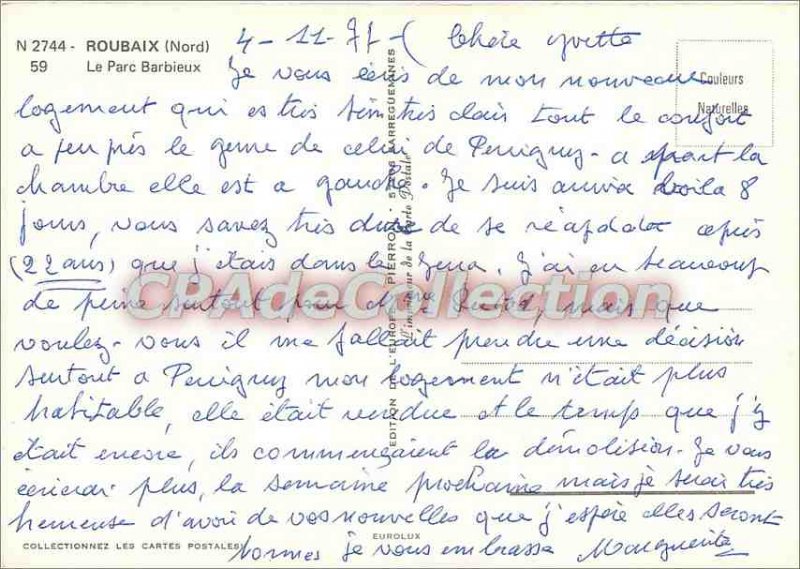 N 2744 - ROUBAIX (Nord)
59 Le Parc Barbieux
4-11-77 - Chère Yvette
Couleurs
Naturelles
Je vous écris de mon nouveau
logement qui es très bien très clair tout le confort
a peu près le genre de celui de Perrigny - a part la
chambre elle est a gauche. Je suis arrivée voila 8
jours, vous savez très dur de se réapdater après
(22 ans) que j'étais dans le Jura. J'ai eu beaucoup
de peine surtout pour mais que
voulez-vous il me fallait prendre une décision
surtout a Perrigny mon logement n'était plus
habitable, elle était vendue et le temps que j'y
était encore, ils commençaient la démolision. Je vous
écrierai plus, la semaine prochaine mais je serai très
heureuse d'avoir de vos nouvelles que j'espère elles seront
bonnes je vous embrasse Marguerite
COLLECTIONNEZ LES CARTES POSTALES
EUROLUX
EDITION DE L'EUROPE - PIERRON - SARREGUEMINES
L'imprimeur de la Carte Postale
CPAdeCollection